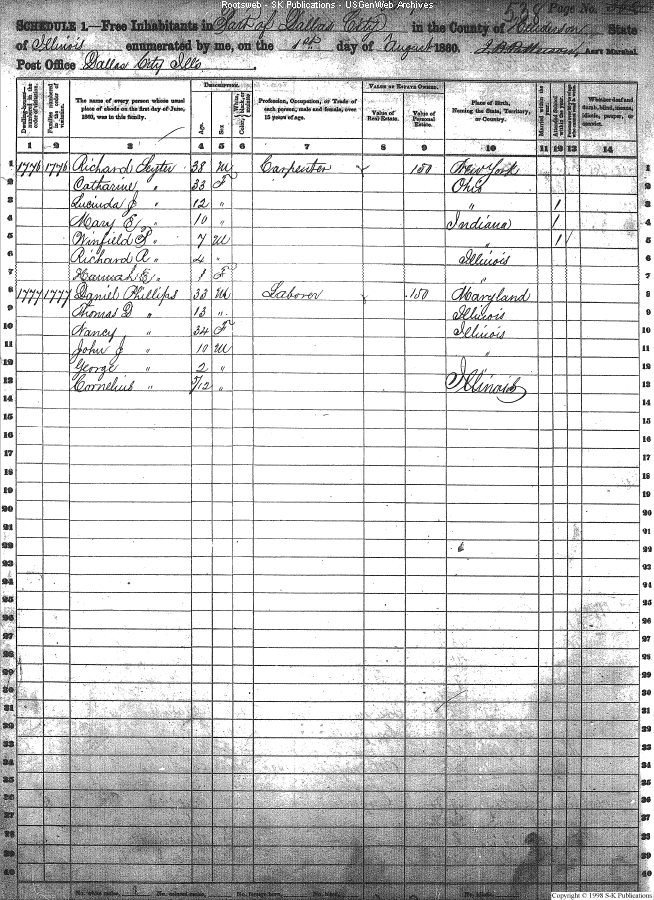 Rootsweb - SK Publications - USGenWeb Archives
538 Page No.
SCHEDULE 1.—Free Inhabitants in Part of Dallas City in the County of Henderson State
of Illinois enumerated by me, on the 1st day of August 1860. Ass't Marshal.
Post Office Dallas City Ills
The name of every person whose usual place of abode on the first day of June, 1860, was in this family.
DESCRIPTION.
Age.
Sex
Profession, Occupation, or Trade of each person, male and female, over 15 years of age.
VALUE OF ESTATE OWNED.
Value of Real Estate.
Value of Personal Estate.
Place of Birth, Naming the State, Territory, or Country.
Whether deaf and dumb, blind, insane, idiotic, pauper, or convict.
1 2 3 4 5 6 7 8 9 10 11 12 13 14
1 1776 1776 Richard 38 M Carpenter 150 New York 1
2 Catharine " 33 F Ohio 2
3 Lucinda J " 12 " " 1 3
4 Mary E " 10 " Indiana 1 4
5 Winfield S " 7 M " 1 5
6 Richard A " 4 " Illinois 6
7 Hannah E " 1 F " 7
8 1777 1777 Daniel Phillips 33 M Laborer 150 Maryland 8
9 Thomas D " 13 " Illinois 9
10 Nancy " 34 F Illinois 10
11 John J " 10 M " 11
12 George " 2 " " 12
13 Cornelius " /12 " Illinois 13
14 14
15 15
16 16
17 17
18 18
19 19
20 20
21 21
22 22
23 23
24 24
25 25
26 26
27 27
28 28
29 29
30 30
31 31
32 32
33 33
34 34
35 35
36 36
37 37
38 38
39 39
40 40
No. white males, No. colored males, No. foreign born, No. blind,
Copyright © 1998 S-K Publications